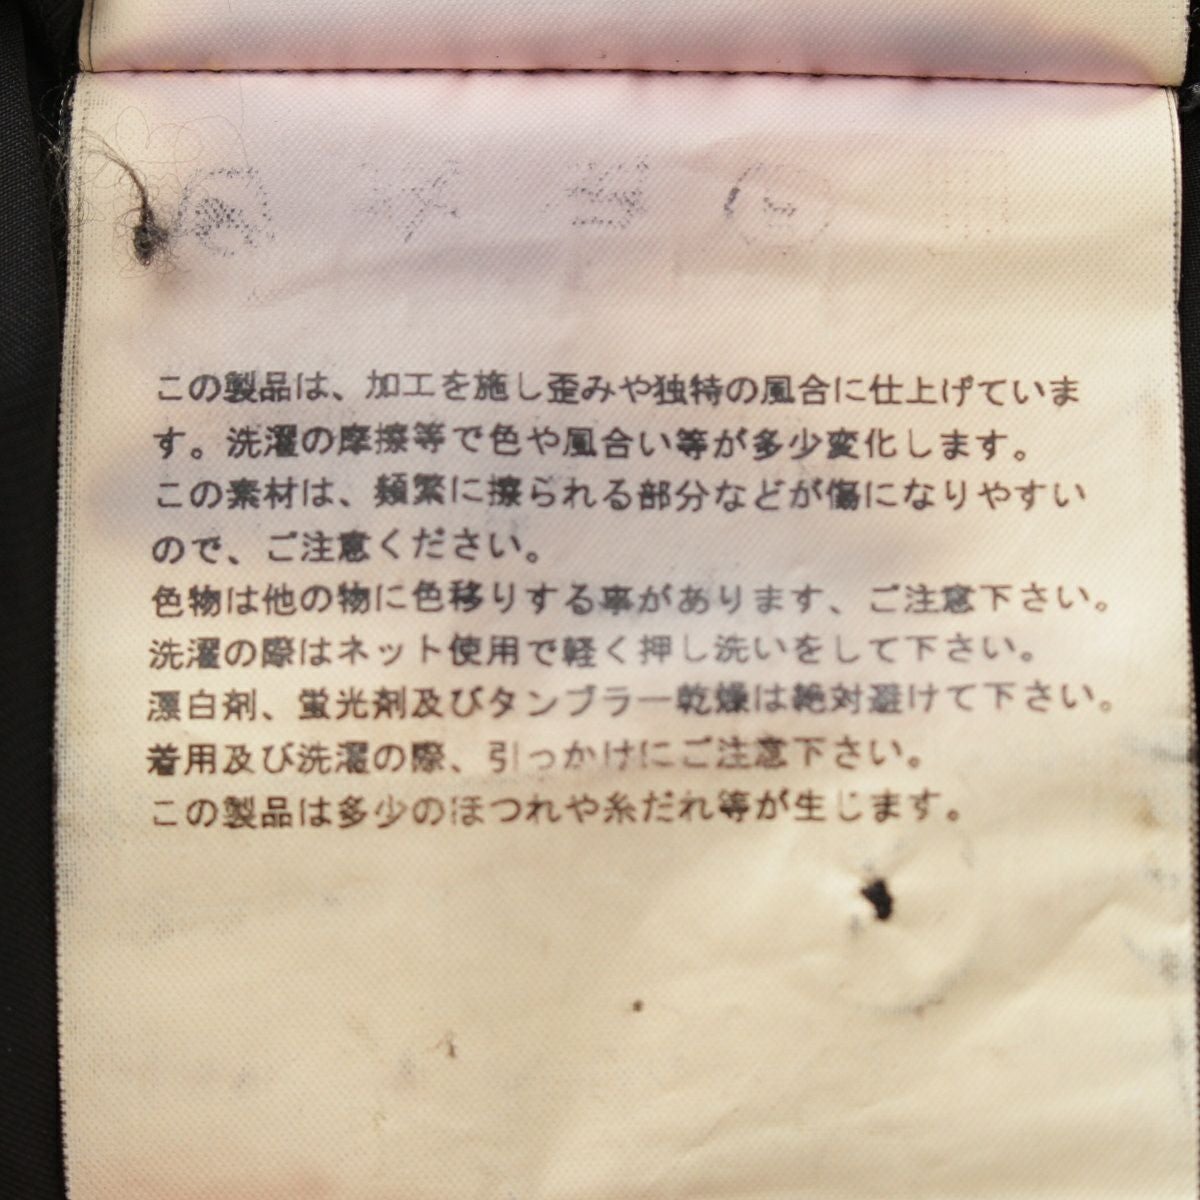 この製品は、加工を施し歪みや独特の風合に仕上げていま
す。洗濯の摩擦等で色や風合い等が多少変化します。
この素材は、頻繁に擦られる部分などが傷になりやすい
ので、ご注意ください。
色物は他の物に色移りする事があります、ご注意下さい。
洗濯の際はネット使用で軽く押し洗いをして下さい。
漂白剤、蛍光剤及びタンブラー乾燥は絶対避けて下さい。
着用及び洗濯の際、引っかけにご注意下さい。
この製品は多少のほつれや糸だれ等が生じます。